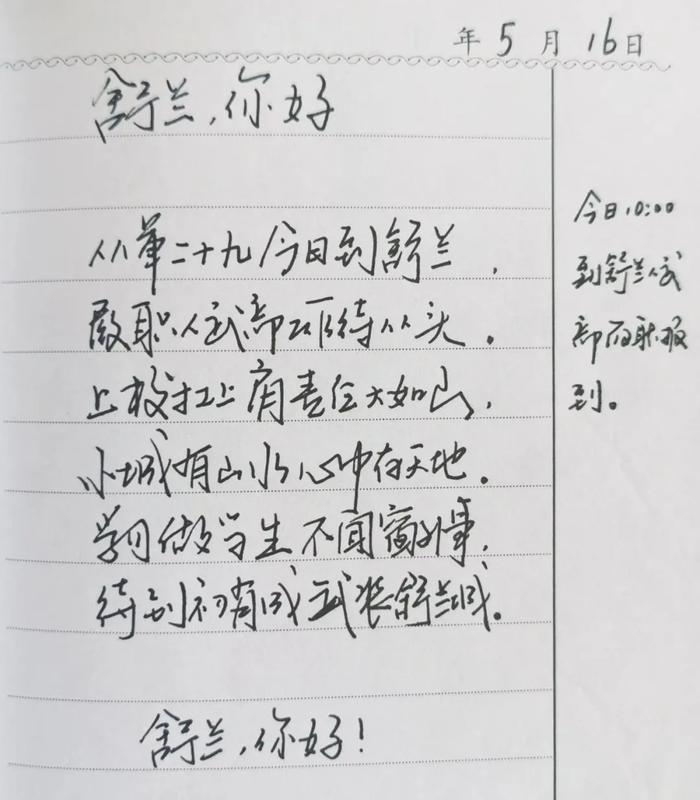 年 5 月 16日
舒兰,你好
从军二十九今日到舒兰,
履职人武部待从头。
上校扛上肩责任大如山,
小城有山水心中有天地。
学习做学生不闻窗外事,
待到初有成武装舒兰城。
舒兰,你好!
今日10:00
到舒兰人武
部职报
到。